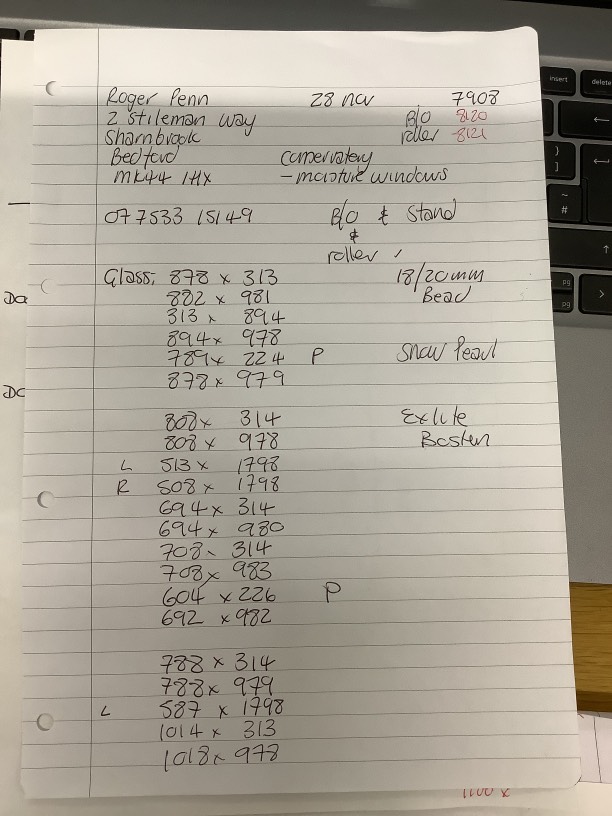 Roger Penn 28 nov 7908
2 Stileman way B/O 8120
Sharnbrook roller -8121
Bedford conservatory
MK44 1HX - moisture windows
077533 15149 B/O & Stand
&
roller
Glass; 878 x 313 18/20mm
882 x 981 Bead
313 x 894
894 x 978
789 x 224 P Snow Pearl
878 x 979
808 x 314 Exlite
808 x 978 Bosten
L 513 x 1798
R 508 x 1798
694 x 314
694 x 980
708 x 314
708 x 983
604 x 226 P
692 x 982
788 x 314
788 x 979
L 587 x 1798
1014 x 313
1018 x 978
1100 x
insert
delete
pg
pg